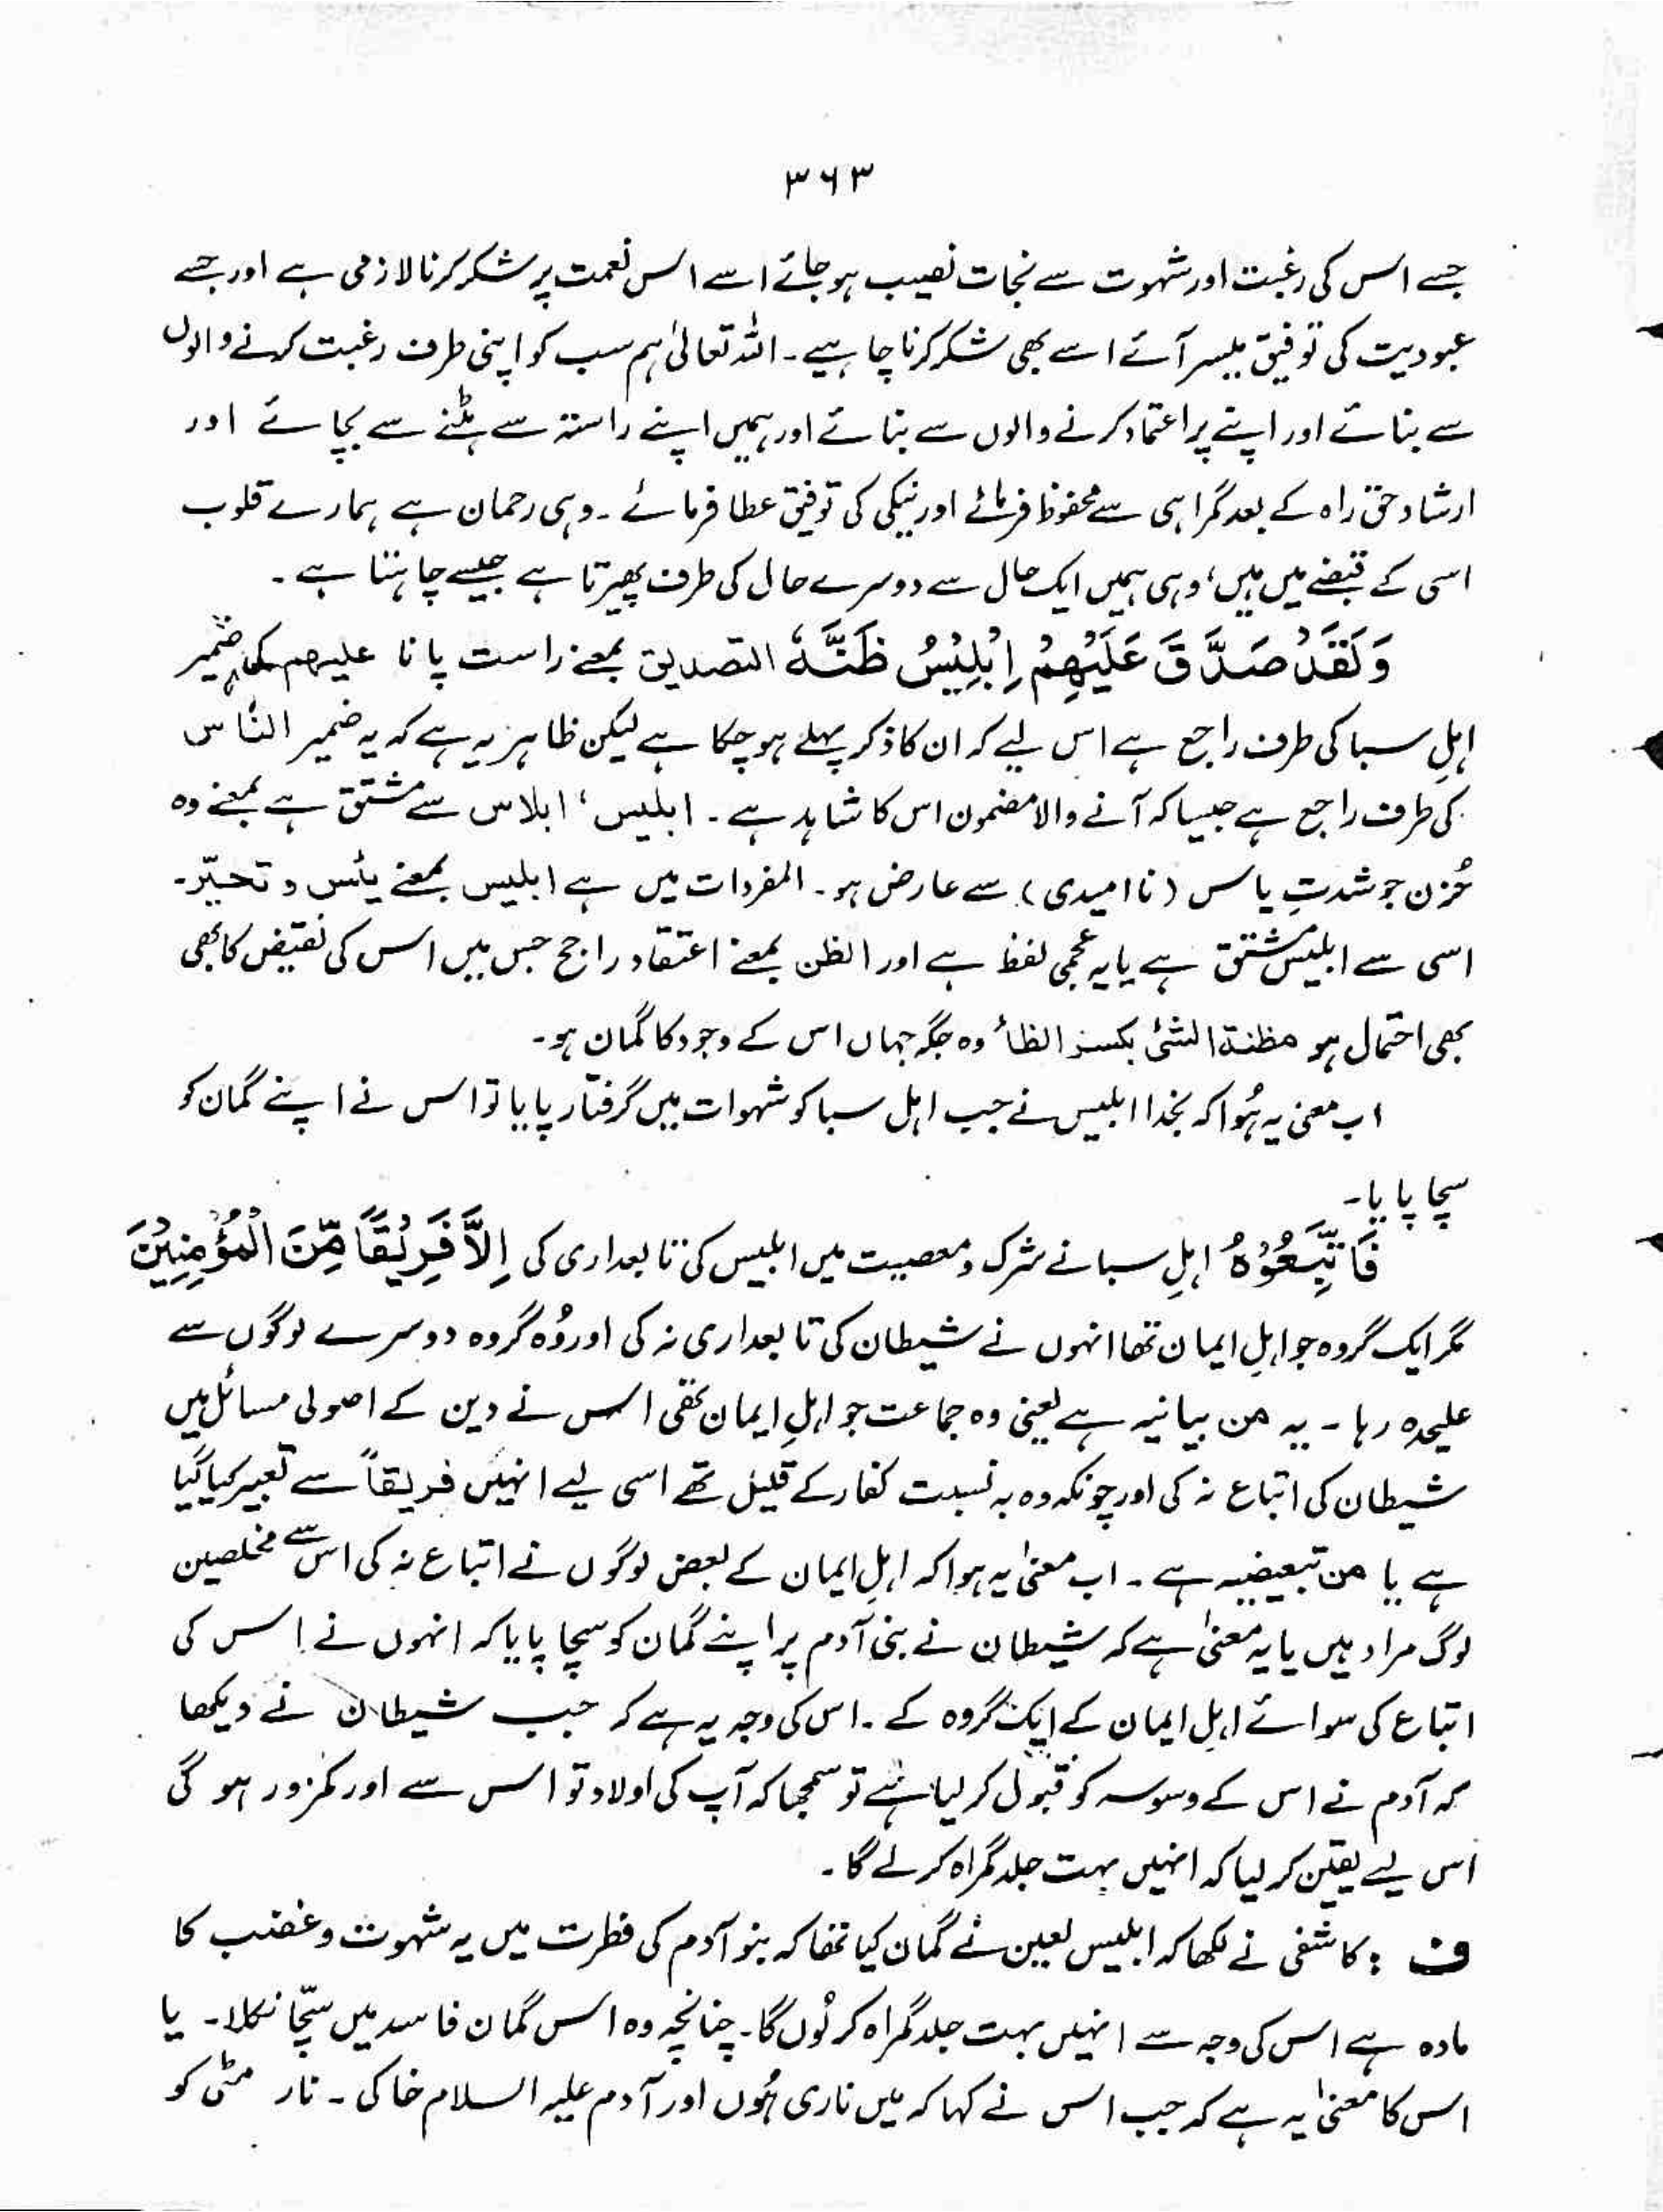 ۳۶۳
جسے اس کی رغبت اور شہوت سے نجات نصیب ہو جائے اسے اس نعمت پر شکر کرنا لازمی ہے اور جسے
عبودیت کی توفیق میسر آئے اسے بھی شکر کرنا چاہیے۔ اللہ تعالیٰ ہم سب کو اپنی طرف رغبت کرنے والوں
سے بنائے اور اپنے پر اعتماد کرنے والوں سے بنائے اور ہمیں اپنے راستہ سے ہٹنے سے بچائے اور
ارشاد حق راہ کے بعد گمراہی سے محفوظ فرمائے اور نیکی کی توفیق عطا فرمائے۔ وہی رحمان ہے ہمارے قلوب
اسی کے قبضے میں ہیں، وہی ہمیں ایک حال سے دوسرے حال کی طرف پھیرتا ہے جیسے چاہتا ہے۔
وَلَقَدْ صَدَّقَ عَلَيْهِمْ اِبْلِيْسُ ظَنَّهٗ التصدیق بمعنے راست پانا علیھم کی ضمیر
اہلِ سبا کی طرف راجع ہے اس لیے کہ ان کا ذکر پہلے ہو چکا ہے لیکن ظاہر یہ ہے کہ یہ ضمیر الناس
کی طرف راجع ہے جیسا کہ آنے والا مضمون اس کا شاہد ہے۔ ابلیس، ابلاس سے مشتق ہے بمعنے وہ
حُزن جو شدتِ یاس (نا امیدی) سے عارض ہو۔ المفردات میں ہے ابلیس بمعنے یئس و تحیّر۔
اسی سے ابلیس مشتق ہے یا یہ عجمی لفظ ہے اور الظن بمعنے اعتقاد راجح جس میں اس کی نقیض کا بھی
بھی احتمال ہو مظنۃ الشئ بکسر الظاء وہ جگہ جہاں اس کے وجود کا گمان ہو۔
اب معنی یہ ہُوا کہ بخدا ابلیس نے جب اہل سبا کو شہوات میں گرفتار پایا تو اس نے اپنے گمان کو
سچا پایا۔
فَاتَّبَعُوْهُ اہلِ سبا نے شرک و معصیت میں ابلیس کی تابعداری کی اِلَّا فَرِيْقًا مِّنَ الْمُؤْمِنِيْنَ
مگر ایک گروہ جو اہلِ ایمان تھا انہوں نے شیطان کی تابعداری نہ کی اور وُہ گروہ دوسرے لوگوں سے
علیحدہ رہا۔ یہ من بیانیہ ہے یعنی وہ جماعت جو اہلِ ایمان تھی اس نے دین کے اصولی مسائل میں
شیطان کی اتباع نہ کی اور چونکہ وہ بہ نسبت کفار کے قلیل تھے اسی لیے انہیں فریقاً سے تعبیر کیا گیا
ہے یا من تبعیضیہ ہے۔ اب معنیٰ یہ ہوا کہ اہلِ ایمان کے بعض لوگوں نے اتباع نہ کی اس سے مخلصین
لوگ مراد ہیں یا یہ معنیٰ ہے کہ شیطان نے بنی آدم پر اپنے گمان کو سچا پایا کہ انہوں نے اس کی
اتباع کی سوائے اہل ایمان کے ایک گروہ کے۔ اس کی وجہ یہ ہے کہ جب شیطان نے دیکھا
کہ آدم نے اس کے وسوسہ کو قبول کر لیا ہے تو سمجھا کہ آپ کی اولاد تو اس سے اور کمزور ہو گی
اس لیے یقین کر لیا کہ انہیں بہت جلد گمراہ کر لے گا۔
ف : کاشفی نے لکھا کہ ابلیس لعین نے گمان کیا تھا کہ بنو آدم کی فطرت میں یہ شہوت و غضب کا
مادہ ہے اس کی وجہ سے انہیں بہت جلد گمراہ کر لُوں گا۔ چنانچہ وہ اس گمان فاسد میں سچّا نکلا۔ یا
اس کا معنیٰ یہ ہے کہ جب اس نے کہا کہ میں ناری ہُوں اور آدم علیہ السلام خاکی۔ نار مٹی کو